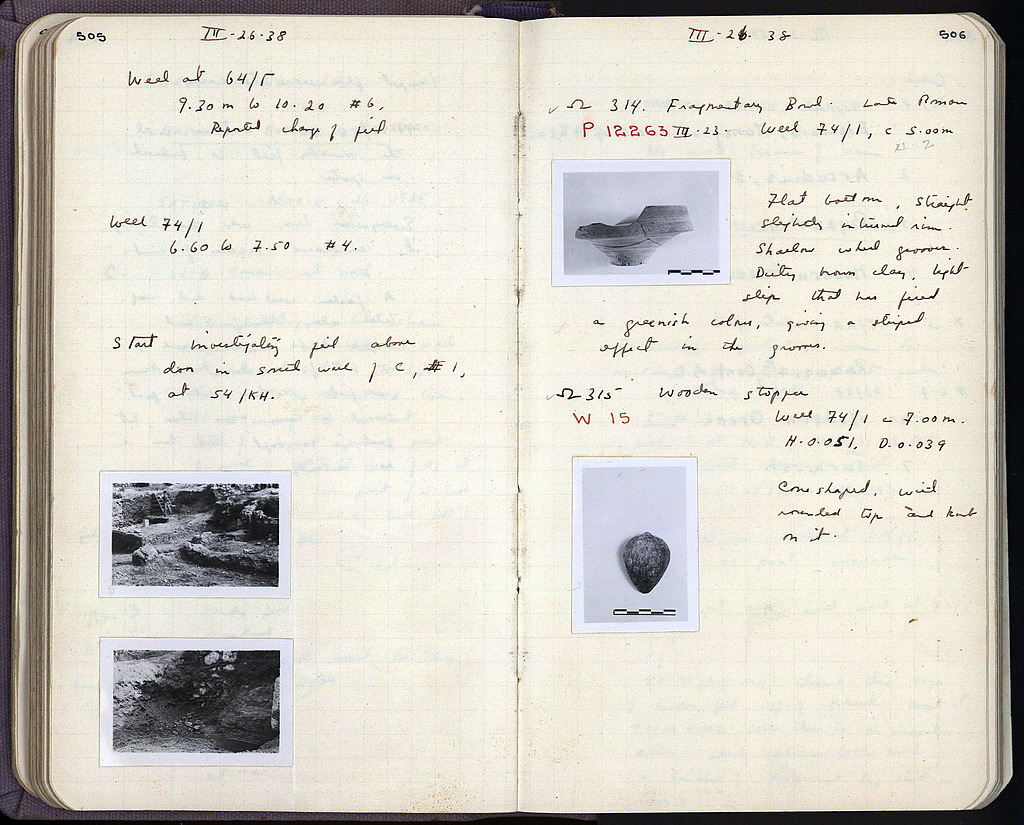 505
III-26-38
Well at 64/Γ
9.30 m to 10.20 #6,
Reported change of fill
Well 74/1
6.60 to 7.50 #4.
Start investigating fill above
door in south wall of C, #1,
at 54/KH.
III-26.38
506
Ω 314. Fragmentary Bowl. Late Roman
P 12263 III-23- Well 74/1, c 5.00m
# 2
Flat bottom, straight
slightly inturned rim.
Shallow wheel grooves.
Dirty brown clay, light
slip that has fired
a greenish colour, giving a striped
effect in the grooves.
Ω 315 Wooden stopper
W 15 Well 74/1 c 7.00m.
H. 0.051, D. 0.039
Cone shaped, with
rounded top and knob
on it.